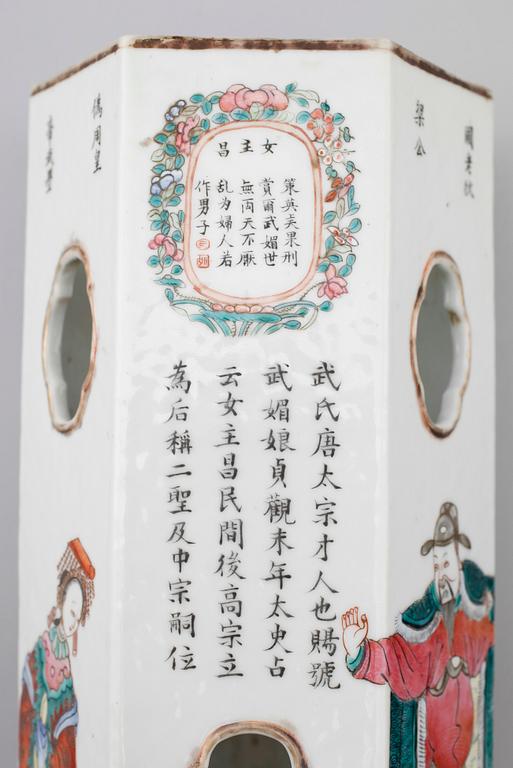 國老狄
梁公
女主昌
策英爽果刑
賞爾武媚世
無両天不厭
乱为婦人若
作男子
武氏唐太宗才人也賜號
武媚娘貞觀末年太史占
云女主昌民間後高宗立
為后稱二聖及中宗嗣位
偽周皇
帝武曌